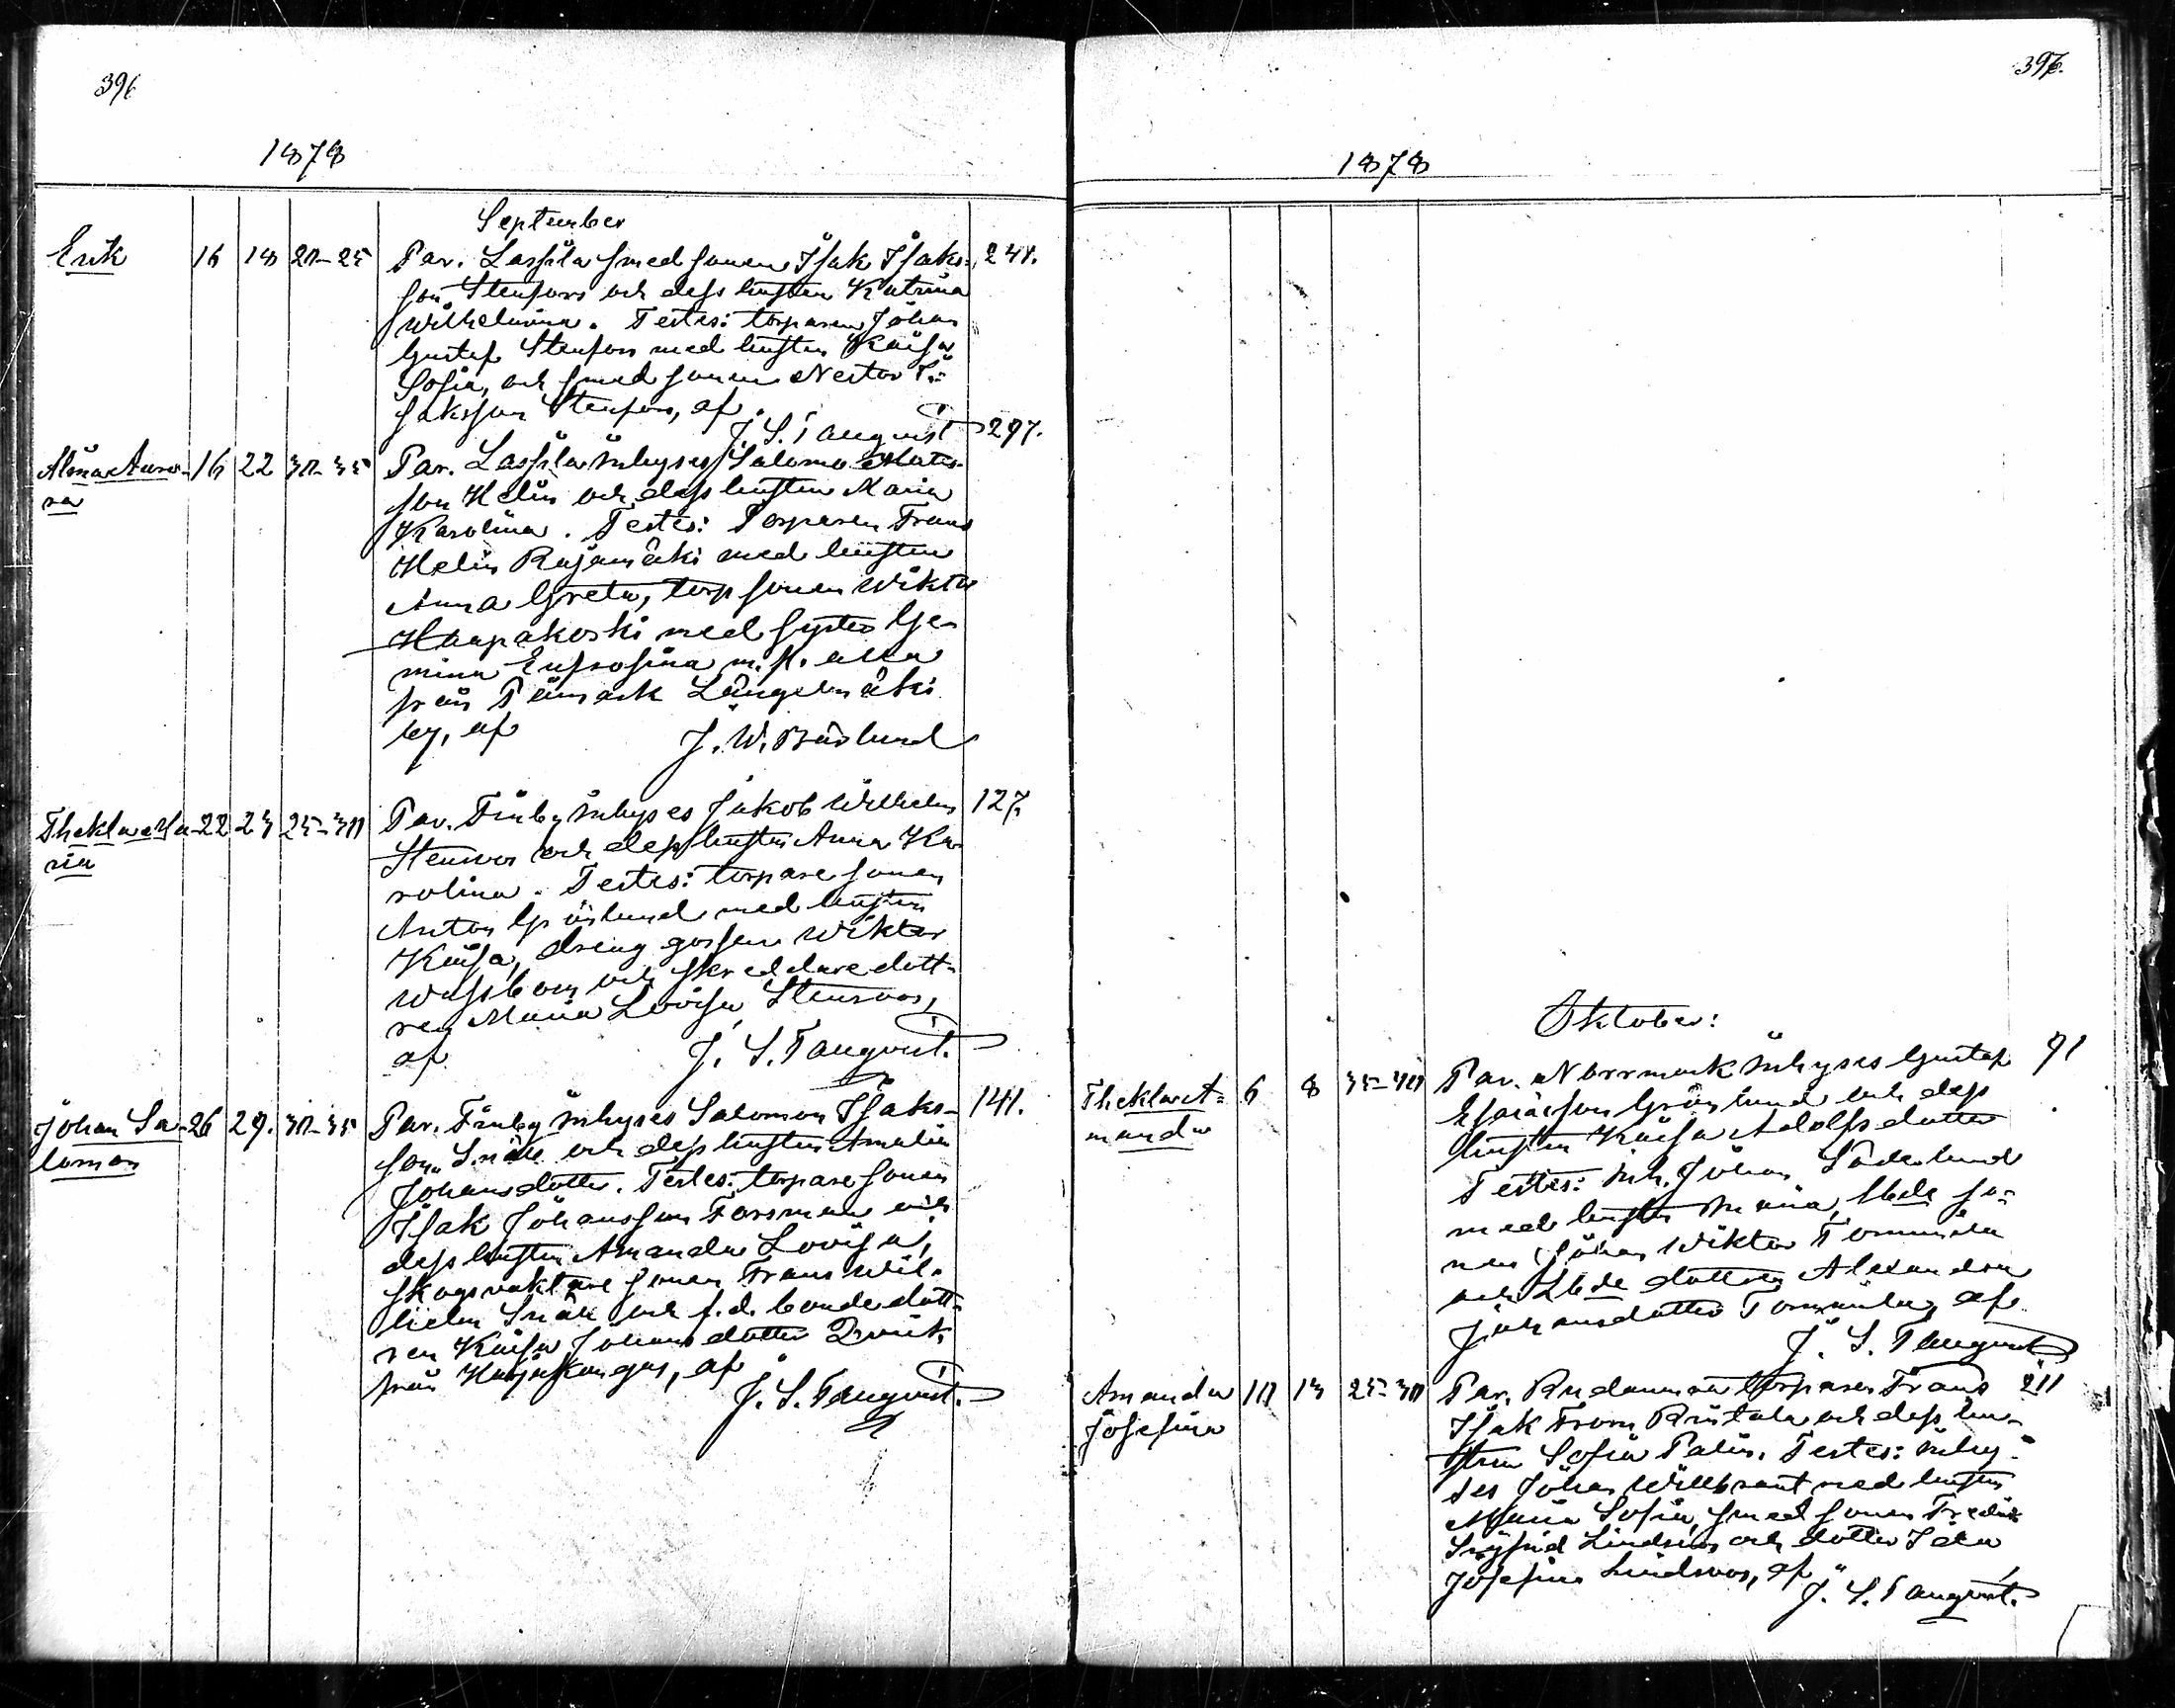 396
1878
September
Erik 16 18 20-25 Par. Lassila smedsonen Isak Isaks- 241.
son Stenfors och dess hustru Katrina
Wilhelmina. Testes: torparen Johan
Gustaf Stenfors med hustru Kaisa
Sofia, och smedsonen Nestor I-
saksson Stenfors, af
J. S. Tanqvist 297.
Alma Auro- 16 22 30-35 Par. Lassila inhyses Salomo Mats-
ra son Helin och dess hustru Maria
Karolina. Testes: Torparen Frans
Helin Rajamäki med hustru
Anna Greta, torpsonen Wiktor
Haapakoski med syster Ge-
mina Eufrosina m. fl. alla
från Påmark Längelmäki
by, af J. W. Bäcklund
Thekla Ma- 22 23 25-30 Par. Finby inhyses Jakob Wilhelm 127.
ria Stenroos och dess hustru Anna Ka-
rolina. Testes: torparesonen
Anton Grönlund med hustru
Kaisa, dreng gossen Wiktor
Wassbom och skreddaredott-
ren Maria Lovisa Stenroos,
af J. S. Tanqvist.
Johan Sa- 26 29. 30-35 Par. Finby inhyses Salomon Isaks- 141.
lomon son Snäll och dess hustru Amalia
Johansdotter. Testes: torparesonen
Isak Johansson Forsman och
dess hustru Amanda Lovisa,
skogsvaktaresonen Frans Wil-
helm Snäll och f.d. bondedott-
ren Kaisa Johansdotter
från Harjakangas, af
J. S. Tanqvist.
397.
1878
Oktober:
Thekla A- 6 8 35-40 Par. Norrmark inhyses Gustaf 91
manda Esaiasson Grönlund och dess
hustru Kaisa Adolfsdotter
Testes: inh. Johan Söderlund
med hustru Maria, so-
nen Johan Wiktor Tommila
och dottren Alexandra
Johansdotter Tommila, af
J. S. Tanqvist
Amanda 10 13 25-30 Par. Rudanmaa torparen Frans 211
Josefina Isak From Rintala och dess hu-
stru Sofia Palin. Testes: inhy-
ses Johan Willbrant med hustru
Maria Sofia, smedsonen Fredrik
Sigfrid Lindroos och dotter Ida
Josefina Lindroos, af
J. S. Tanqvist.